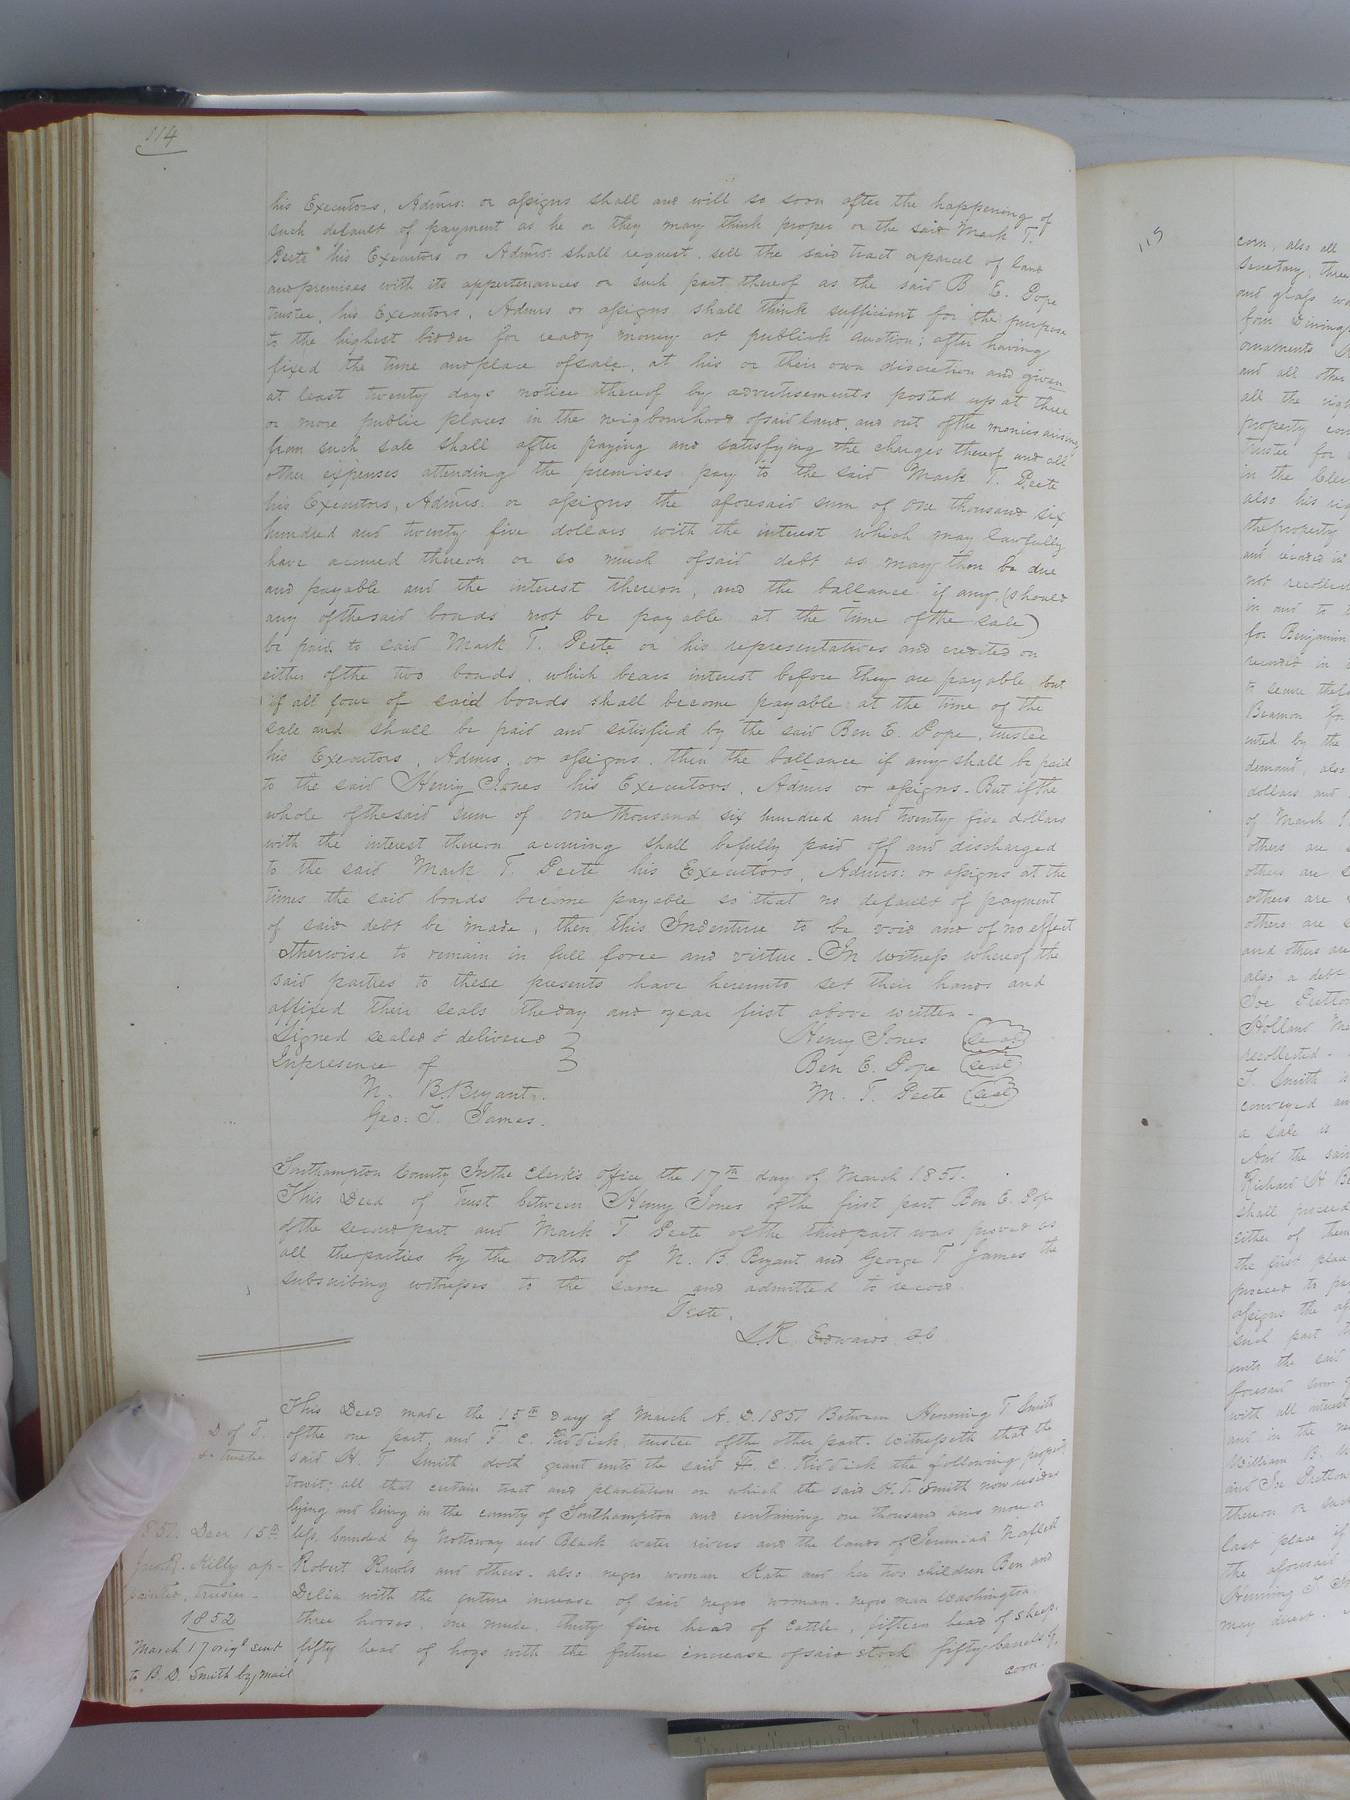 114
his Executors, Admrs: or assigns shall and will so soon after the happening of
such default of payment as he or they may think proper or the said Mark T.
Peete his Executors or Admrs. shall request, sell the said tract or parcel of land
and premises with its appertenances or such part thereof as the said B. E. Pope
trustee, his Executors, Admrs or assigns shall think sufficient for the purpose
to the highest bidder for ready money at publick auction; after having
fixed the time and place of sale, at his or their own discretion and given
at least twenty days notice thereof by advertisements posted up at three
or more public places in the neighbourhood of said land, and out of the monies arising
from such sale shall after paying and satisfying the charges thereof and all
other expenses attending the premises pay to the said Mark T. Peete
his Executors, Admrs. or assigns the aforesaid sum of One thousand six
hundred and twenty five dollars with the interest which may lawfully
have accrued thereon or so much of said debt as may then be due
and payable and the interest thereon, and the ballance if any, (should
any of the said bonds not be payable at the time of the sale)
be paid to said Mark T. Peete or his representatives and credited on
either of the two bonds, which bears interest before they are payable but
if all four of said bonds shall become payable at the time of the
sale and shall be paid and satisfied by the said Ben E. Pope, trustee
his Executors, Admrs. or assigns, then the ballance if any shall be paid
to the said Henry Jones his Executors, Admrs or assigns. But if the
whole of the said sum of one thousand six hundred and twenty five dollars
with the interest thereon accruing shall be fully paid off and discharged
to the said Mark T. Peete his Executors, Admrs: or assigns at the
times the said bonds become payable so that no default of payment
of said debt be made, then this Indenture to be void and of no effect
otherwise to remain in full force and virtue. In witness whereof the
said parties to these presents have hereunto set their hands and
affixed their seals the day and year first above written.
Signed sealed & delivered } Henry Jones (Seal)
In presence of } Ben E. Pope (Seal)
N. B. Bryant. M. T. Peete (Seal)
Geo. T. James.
Southampton County In the Clerk's office the 17th day of March 1851.
This Deed of Trust between Henry Jones of the first part Ben E. Pope
of the second part and Mark T Peete of the third part was proved as
all the parties by the oaths of N. B. Bryant and George T James the
subscribing witnesses to the same and admitted to record
Teste,
L. R. Edwards Clk
This Deed made the 15th day of March A. D. 1851 Between Henning T Smith
of the one part, and F. C. Riddick, trustee of the other part. Witnesseth that the
said H. T Smith doth grant unto the said F. C. Riddick the following property
towit: all that certain tract and plantation on which the said H. T. Smith now resides
lying and being in the county of Southampton and containing one thousand acres more or
less, bounded by Nottoway and Black water rivers and the lands of Jeremiah
Robert Rawls and others. also negro woman Kate and her two children Ben and
Delia with the future increase of said negro woman. negro man Washington.
three horses, one mule, thirty five head of Cattle, fifteen head of sheep.
fifty head of hogs with the future increase of said stock fifty barrels of
corn.
D of T.
trustee
1851. Decr 15th
Kelly ap-
pointed, trustee.
1852
March 17 origl sent
to B. D. Smith by mail
115
corn, also all
Secretary, three
and glass
four Dining
ornaments
and all other
all the righ
property con
trustee for
in the Cler
also his rig
the property
and recorded in
not recollec
in and to
for Benjamin
recorded in
to secure the
Beamon
by the
demand, also
dollars and
of March
others are
others are
others are
others are
and others are
also a debt
Joe Pretlow
Holland
recollected.
T. Smith
conveyed an
a sale is
And the said
Richard H
shall proceed
either of them
the first place
proceed to pay
assigns the
such part
unto the said
foresaid sum
with all interest
and in the
William B.
and Joe Pretlow
thereon or such
last place if
the aforesaid
Henning T.
may direct.